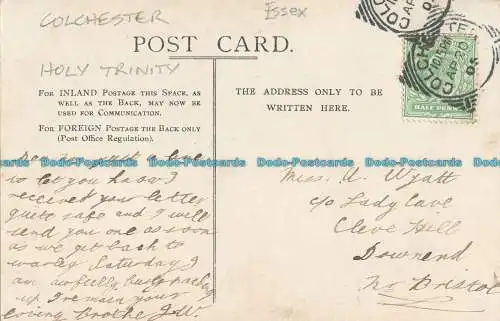 COLCHESTER
Essex
POST CARD.
HOLY TRINITY
FOR INLAND POSTAGE THIS SPACE, AS
WELL AS THE BACK, MAY NOW BE
USED FOR COMMUNICATION.
FOR FOREIGN POSTAGE THE BACK ONLY
(Post Office Regulation).
THE ADDRESS ONLY TO BE
WRITTEN HERE.
COLCHESTER
AP
HALF PENNY
to let you know I
received your letter
quite safe and I will
send you one as soon
as we get back to
Saturday I
am awfully busy packing
up. I remain your
loving brothe J.W.
Miss. U. Wyatt
c/o Lady Cave
Cleve Hill
Downend
Nr Bristol
Dodo-Postcards Dodo-Postcards Dodo-Postcards Dodo-Postcards